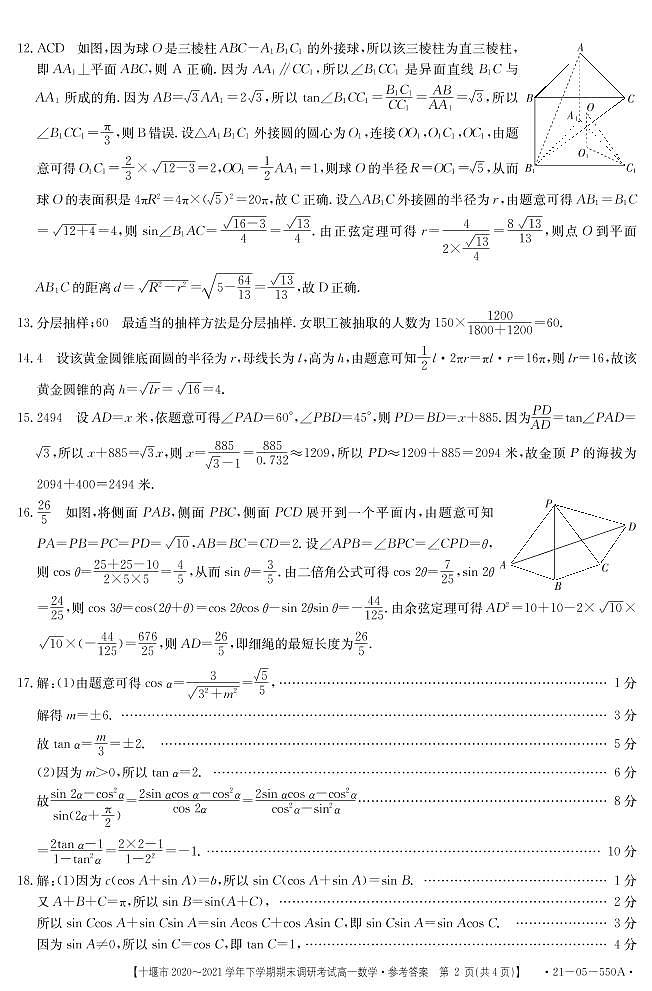 12. ACD 如图,因为球 O 是三棱柱 ABC－A₁B₁C₁ 的外接球,所以该三棱柱为直三棱柱,
即 AA₁⊥平面 ABC,则 A 正确. 因为 AA₁∥CC₁,所以∠B₁CC₁ 是异面直线 B₁C 与
AA₁ 所成的角. 因为 AB=√3 AA₁=2√3,所以 tan∠B₁CC₁=B₁C₁/CC₁=AB/AA₁=√3,所以
∠B₁CC₁=π/3,则 B 错误. 设△A₁B₁C₁ 外接圆的圆心为 O₁,连接 OO₁,O₁C₁,OC₁,由题
意可得 O₁C₁=2/3×√(12−3)=2,OO₁=1/2 AA₁=1,则球 O 的半径 R=OC₁=√5,从而
球 O 的表面积是 4πR²=4π×(√5)²=20π,故 C 正确. 设△AB₁C 外接圆的半径为 r,由题意可得 AB₁=B₁C
=√(12+4)=4,则 sin∠B₁AC=√(16−3)/4=√13/4. 由正弦定理可得 r=4/(2×√13/4)=8√13/13,则点 O 到平面
AB₁C 的距离 d=√(R²−r²)=√(5−64/13)=√13/13,故 D 正确.
A
B
C
O
A₁
O₁
B₁
C₁
13. 分层抽样;60 最适当的抽样方法是分层抽样. 女职工被抽取的人数为 150×1200/(1800+1200)=60.
14. 4 设该黄金圆锥底面圆的半径为 r,母线长为 l,高为 h,由题意可知 1/2 l·2πr=πl·r=16π,则 lr=16,故该
黄金圆锥的高 h=√(lr)=√16=4.
15. 2494 设 AD=x 米,依题意可得∠PAD=60°,∠PBD=45°,则 PD=BD=x+885. 因为 PD/AD=tan∠PAD=
√3,所以 x+885=√3x,则 x=885/(√3−1)=885/0.732≈1209,所以 PD≈1209+885=2094 米,故金顶 P 的海拔为
2094+400=2494 米.
16. 26/5 如图,将侧面 PAB,侧面 PBC,侧面 PCD 展开到一个平面内,由题意可知
PA=PB=PC=PD=√10,AB=BC=CD=2. 设∠APB=∠BPC=∠CPD=θ,
则 cos θ=(25+25−10)/(2×5×5)=4/5,从而 sin θ=3/5. 由二倍角公式可得 cos 2θ=7/25,sin 2θ
=24/25,则 cos 3θ=cos(2θ+θ)=cos 2θcos θ−sin 2θsin θ=−44/125. 由余弦定理可得 AD²=10+10−2×√10×
√10×(−44/125)=676/25,则 AD=26/5,即细绳的最短长度为 26/5.
P
D
A
C
B
17. 解:(1)由题意可得 cos α=3/√(3²+m²)=√5/5, …… 1 分
解得 m=±6. …… 3 分
故 tan α=m/3=±2. …… 5 分
(2)因为 m>0,所以 tan α=2. …… 6 分
故 (sin 2α−cos²α)/sin(2α+π/2)=(2sin αcos α−cos²α)/cos 2α=(2sin αcos α−cos²α)/(cos²α−sin²α) …… 8 分
=(2tan α−1)/(1−tan²α)=(2×2−1)/(1−2²)=−1. …… 10 分
18. 解:(1)因为 c(cos A+sin A)=b,所以 sin C(cos A+sin A)=sin B. …… 1 分
又 A+B+C=π,所以 sin B=sin(A+C), …… 2 分
所以 sin Ccos A+sin Csin A=sin Acos C+cos Asin C,即 sin Csin A=sin Acos C. …… 3 分
因为 sin A≠0,所以 sin C=cos C,即 tan C=1, …… 4 分
【十堰市 2020～2021 学年下学期期末调研考试高一数学·参考答案 第 2 页(共 4 页)】 ·21－05－550A·